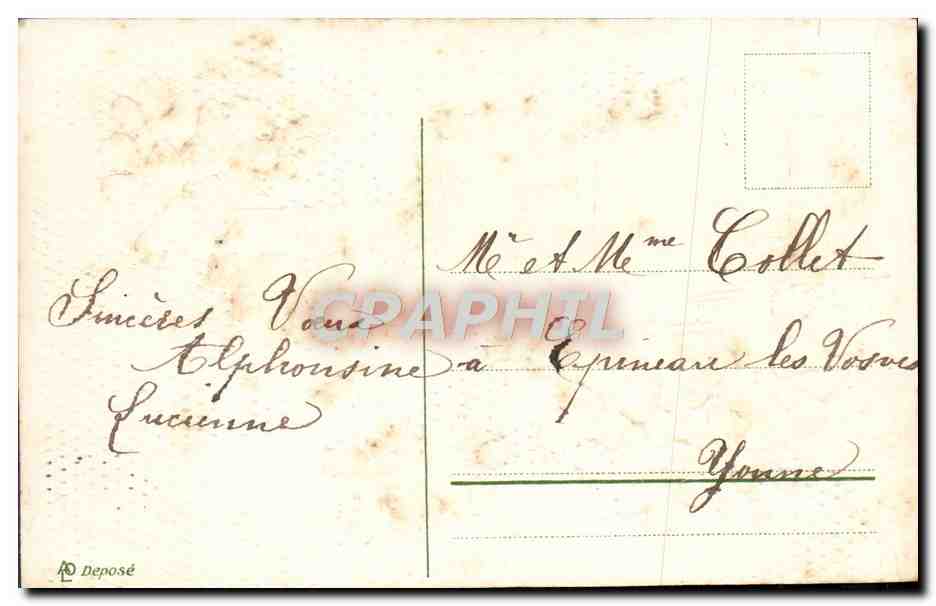 Sincères Vœux
Alphonsine
Lucienne
Mr et Mme Collet
à Epineau les Vosves
Yonne
CPAPHIL
Deposé